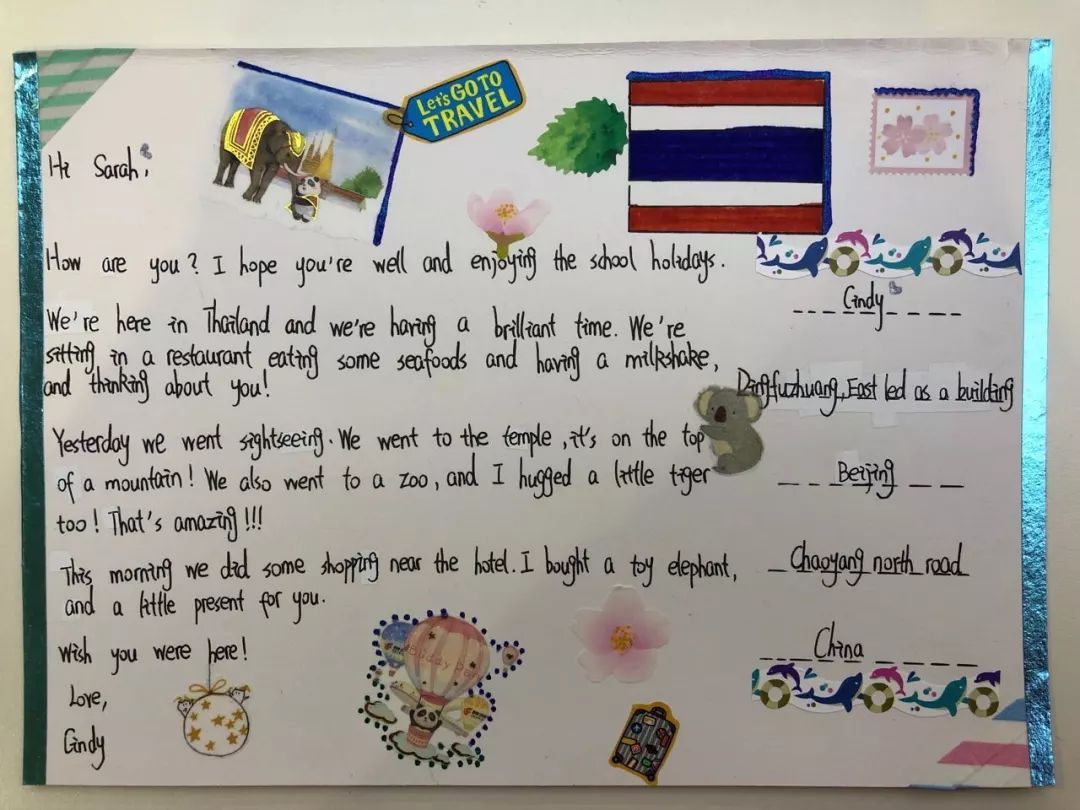 Let's GO TO
TRAVEL
Hi Sarah,
How are you? I hope you're well and enjoying the school holidays.
We're here in Thailand and we're having a brilliant time. We're
sitting in a restaurant eating some seafoods and having a milkshake,
and thinking about you!
Yesterday we went sightseeing. We went to the temple, it's on the top
of a mountain! We also went to a zoo, and I hugged a little tiger
too! That's amazing!!!
This morning we did some shopping near the hotel. I bought a toy elephant,
and a little present for you.
Wish you were here!
Love,
Cindy
Cindy
Dingfuzhuang, East led as a building
Beijing
Chaoyang north road
China
Buddy